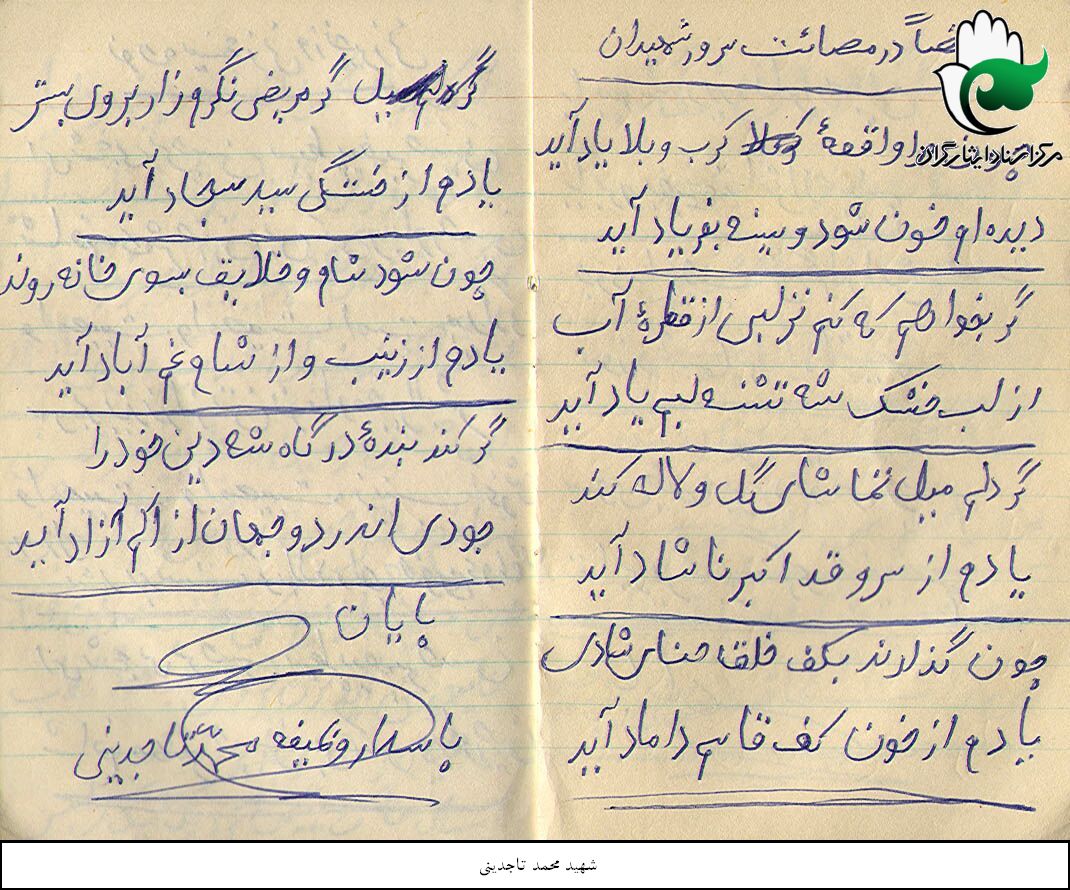 ضاً در مصائت سرور شهیدان
مرکز اسناد ایثارگران
واقعهٔ کرب و بلا یاد آید
دیده ام خون شود و سینه بفریاد آید
گر بخواهم که کنم تر لبی از قطرهٔ آب
از لب خشک شه تشنه لبم یاد آید
گر دلم میل تماشای گل و لاله کند
یادم از سرو قد اکبر ناشاد آید
چون گذارند بکف خلق حنای شادی
یادم از خون کف قاسم داماد آید
گر مریض نگرم زار بروی بستر
یادم از خستگی سید سجاد آید
چون شود شام و خلایق بسوی خانه روند
یادم از زینب و از شام غم آباد آید
گر کند بندهٔ درگاه شه دین خود را
جودی اندر دو جهان از الم آزاد آید
پایان
پاسدار وظیفه محمد تاجدینی
شهید محمد تاجدینی